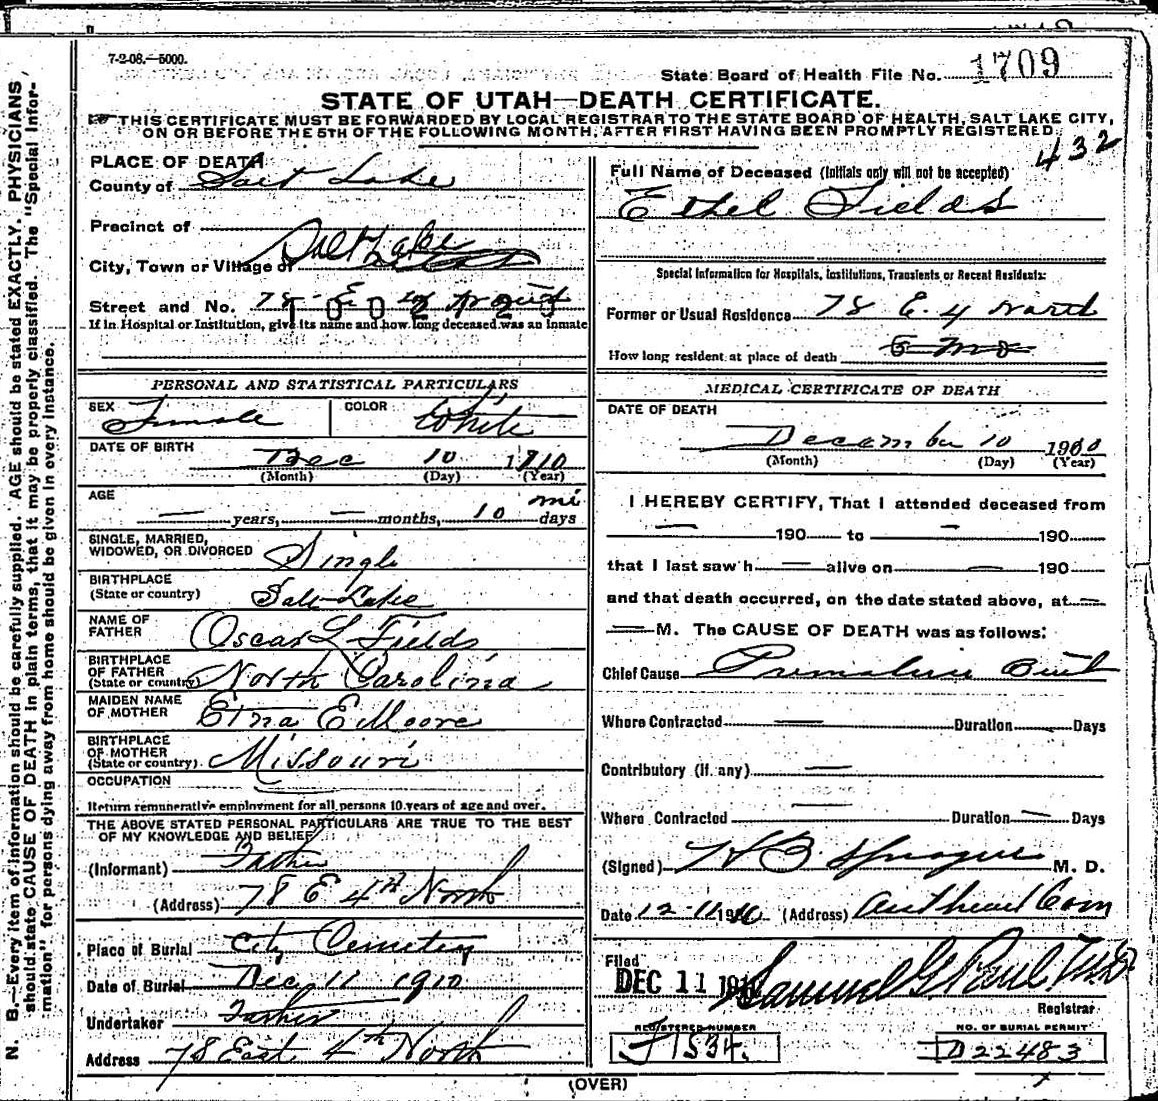 7-2-08.—5000.
State Board of Health File No. 1709
STATE OF UTAH—DEATH CERTIFICATE.
THIS CERTIFICATE MUST BE FORWARDED BY LOCAL REGISTRAR TO THE STATE BOARD OF HEALTH, SALT LAKE CITY,
ON OR BEFORE THE 5TH OF THE FOLLOWING MONTH, AFTER FIRST HAVING BEEN PROMPTLY REGISTERED.
432
PLACE OF DEATH
County of Salt Lake
Precinct of
City, Town or Village of Salt Lake
Street and No. 78 E
1002 23
If in Hospital or Institution, give its name and how long deceased was an Inmate
PERSONAL AND STATISTICAL PARTICULARS
SEX Female COLOR White
DATE OF BIRTH Dec 10 1910
(Month) (Day) (Year)
AGE — years, — months, 10 mi days
SINGLE, MARRIED,
WIDOWED, OR DIVORCED Single
BIRTHPLACE
(State or country) Salt Lake
NAME OF
FATHER Oscar L Fields
BIRTHPLACE
OF FATHER
(State or country) North Carolina
MAIDEN NAME
OF MOTHER Etna E Moore
BIRTHPLACE
OF MOTHER
(State or country) Missouri
OCCUPATION
Return remunerative employment for all persons 10 years of age and over.
THE ABOVE STATED PERSONAL PARTICULARS ARE TRUE TO THE BEST
OF MY KNOWLEDGE AND BELIEF
(Informant) Father
(Address) 78 E 4th North
Place of Burial City Cemetery
Date of Burial Dec 11 1910
Undertaker Father
Address 78 East 4th North
Full Name of Deceased (Initials only will not be accepted)
Ethel Fields
Special Information for Hospitals, Institutions, Transients or Recent Residents:
Former or Usual Residence 78 E. 4 North
How long resident at place of death 6 mo
MEDICAL CERTIFICATE OF DEATH
DATE OF DEATH
December 10 1910
(Month) (Day) (Year)
I HEREBY CERTIFY, That I attended deceased from
— 190 to — 190
that I last saw h — alive on — 190
and that death occurred, on the date stated above, at —
— M. The CAUSE OF DEATH was as follows:
Chief Cause Premature Birth
Where Contracted — Duration — Days
Contributory (if any) —
Where Contracted — Duration — Days
(Signed) H B Sprague M. D.
Date 12-11 1910 (Address)
Filed
DEC 11 1910 Samuel G. Paul M.D.
Registrar
REGISTERED NUMBER
J1534.
NO. OF BURIAL PERMIT
D22483
(OVER)
N. B.—Every item of information should be carefully supplied. AGE should be stated EXACTLY. PHYSICIANS
should state CAUSE OF DEATH in plain terms, that it may be properly classified. The "Special Infor-
mation" for persons dying away from home should be given in every instance.